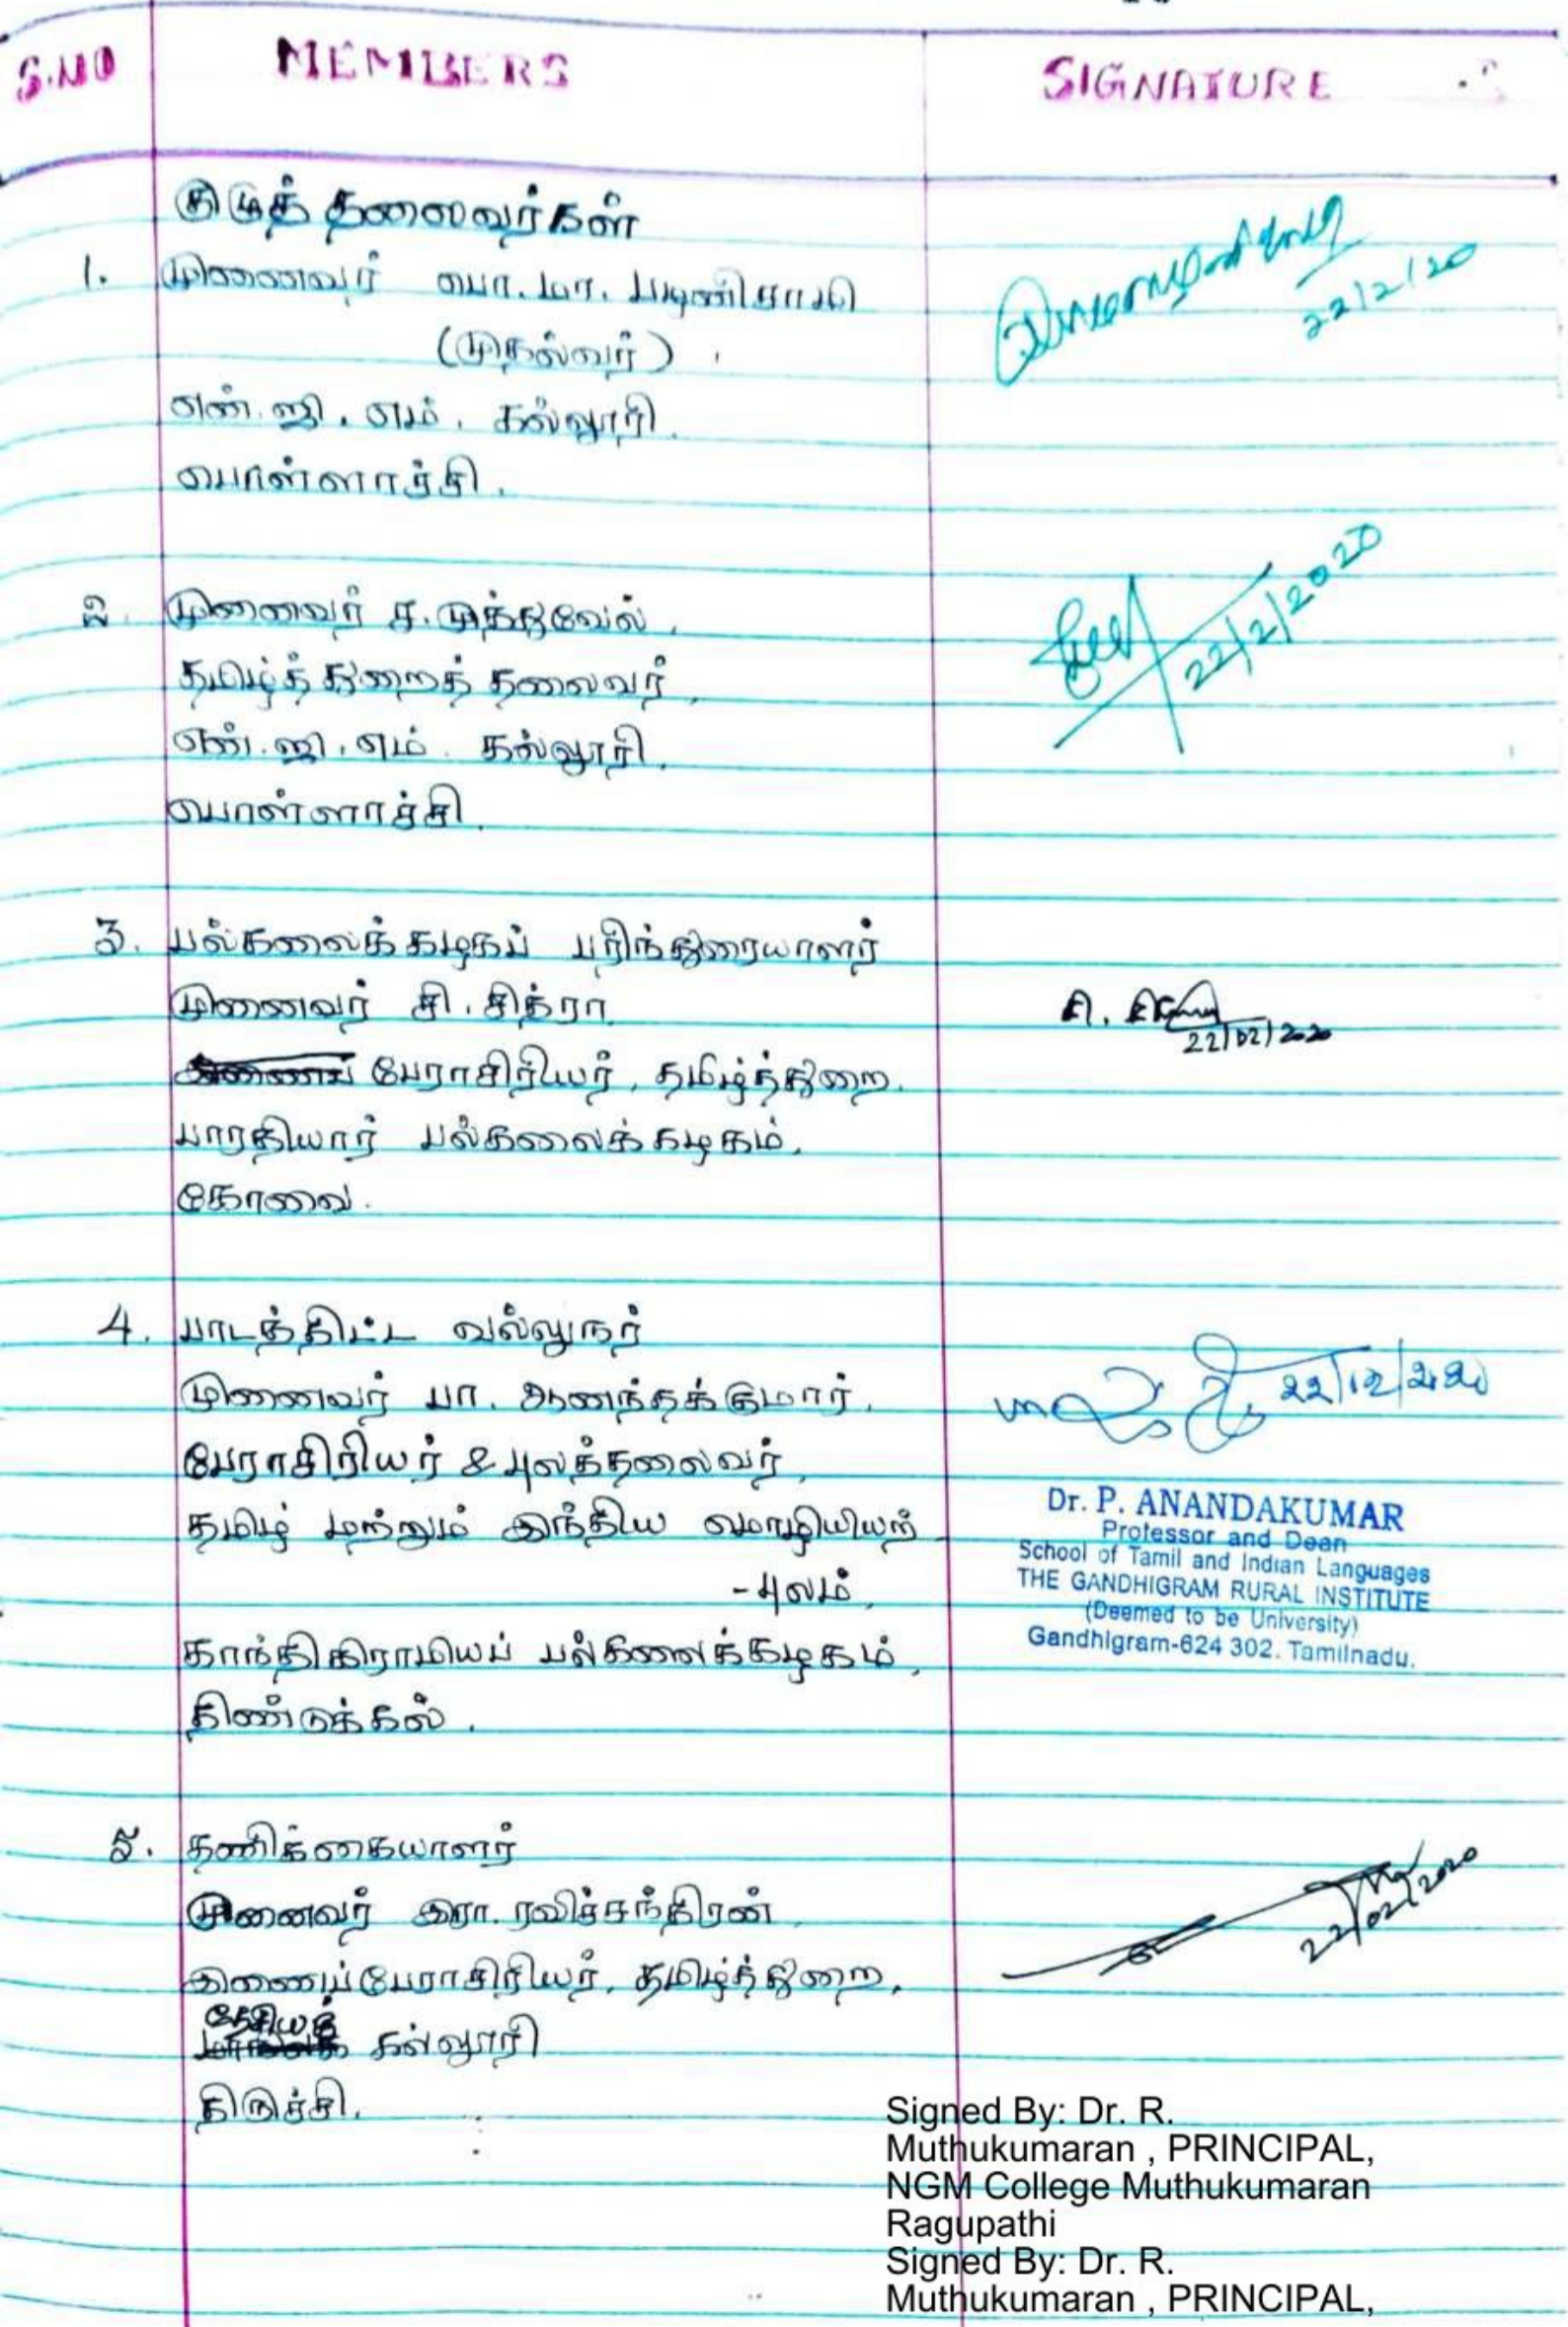 S.NO MEMBERS SIGNATURE
குழுத் தலைவர்கள்
1. முனைவர் பொ.மா. பழனிசாமி
(முதல்வர்)
எண்.ஜி.எம். கல்லூரி.
பொள்ளாச்சி.
22/2/20
2. முனைவர் ச.முத்துவேல்,
தமிழ்த் துறைத் தலைவர்,
எண்.ஜி.எம். கல்லூரி,
பொள்ளாச்சி.
22/2/2020
3. பல்கலைக்கழகப் பரிந்துரையாளர்
முனைவர் சி. சித்ரா
பேராசிரியர், தமிழ்த்துறை.
பாரதியார் பல்கலைக்கழகம்,
கோவை.
22/02/2020
4. பாடத்திட்ட வல்லுநர்
முனைவர் பா. ஆனந்தக்குமார்,
பேராசிரியர் & புலத்தலைவர்,
தமிழ் மற்றும் இந்திய மொழியியற்
-புலம்,
காந்திகிராமியப் பல்கலைக்கழகம்,
திண்டுக்கல்.
Dr. P. ANANDAKUMAR
Professor and Dean
School of Tamil and Indian Languages
THE GANDHIGRAM RURAL INSTITUTE
(Deemed to be University)
Gandhigram-624 302. Tamilnadu.
5. தணிக்கையாளர்
முனைவர் இரா. ரவிச்சந்திரன்
இணைப்பேராசிரியர், தமிழ்த்துறை,
தேசியக்
கல்லூரி
திருச்சி.
22/02/2020
Signed By: Dr. R.
Muthukumaran , PRINCIPAL,
NGM College Muthukumaran
Ragupathi
Signed By: Dr. R.
Muthukumaran , PRINCIPAL,